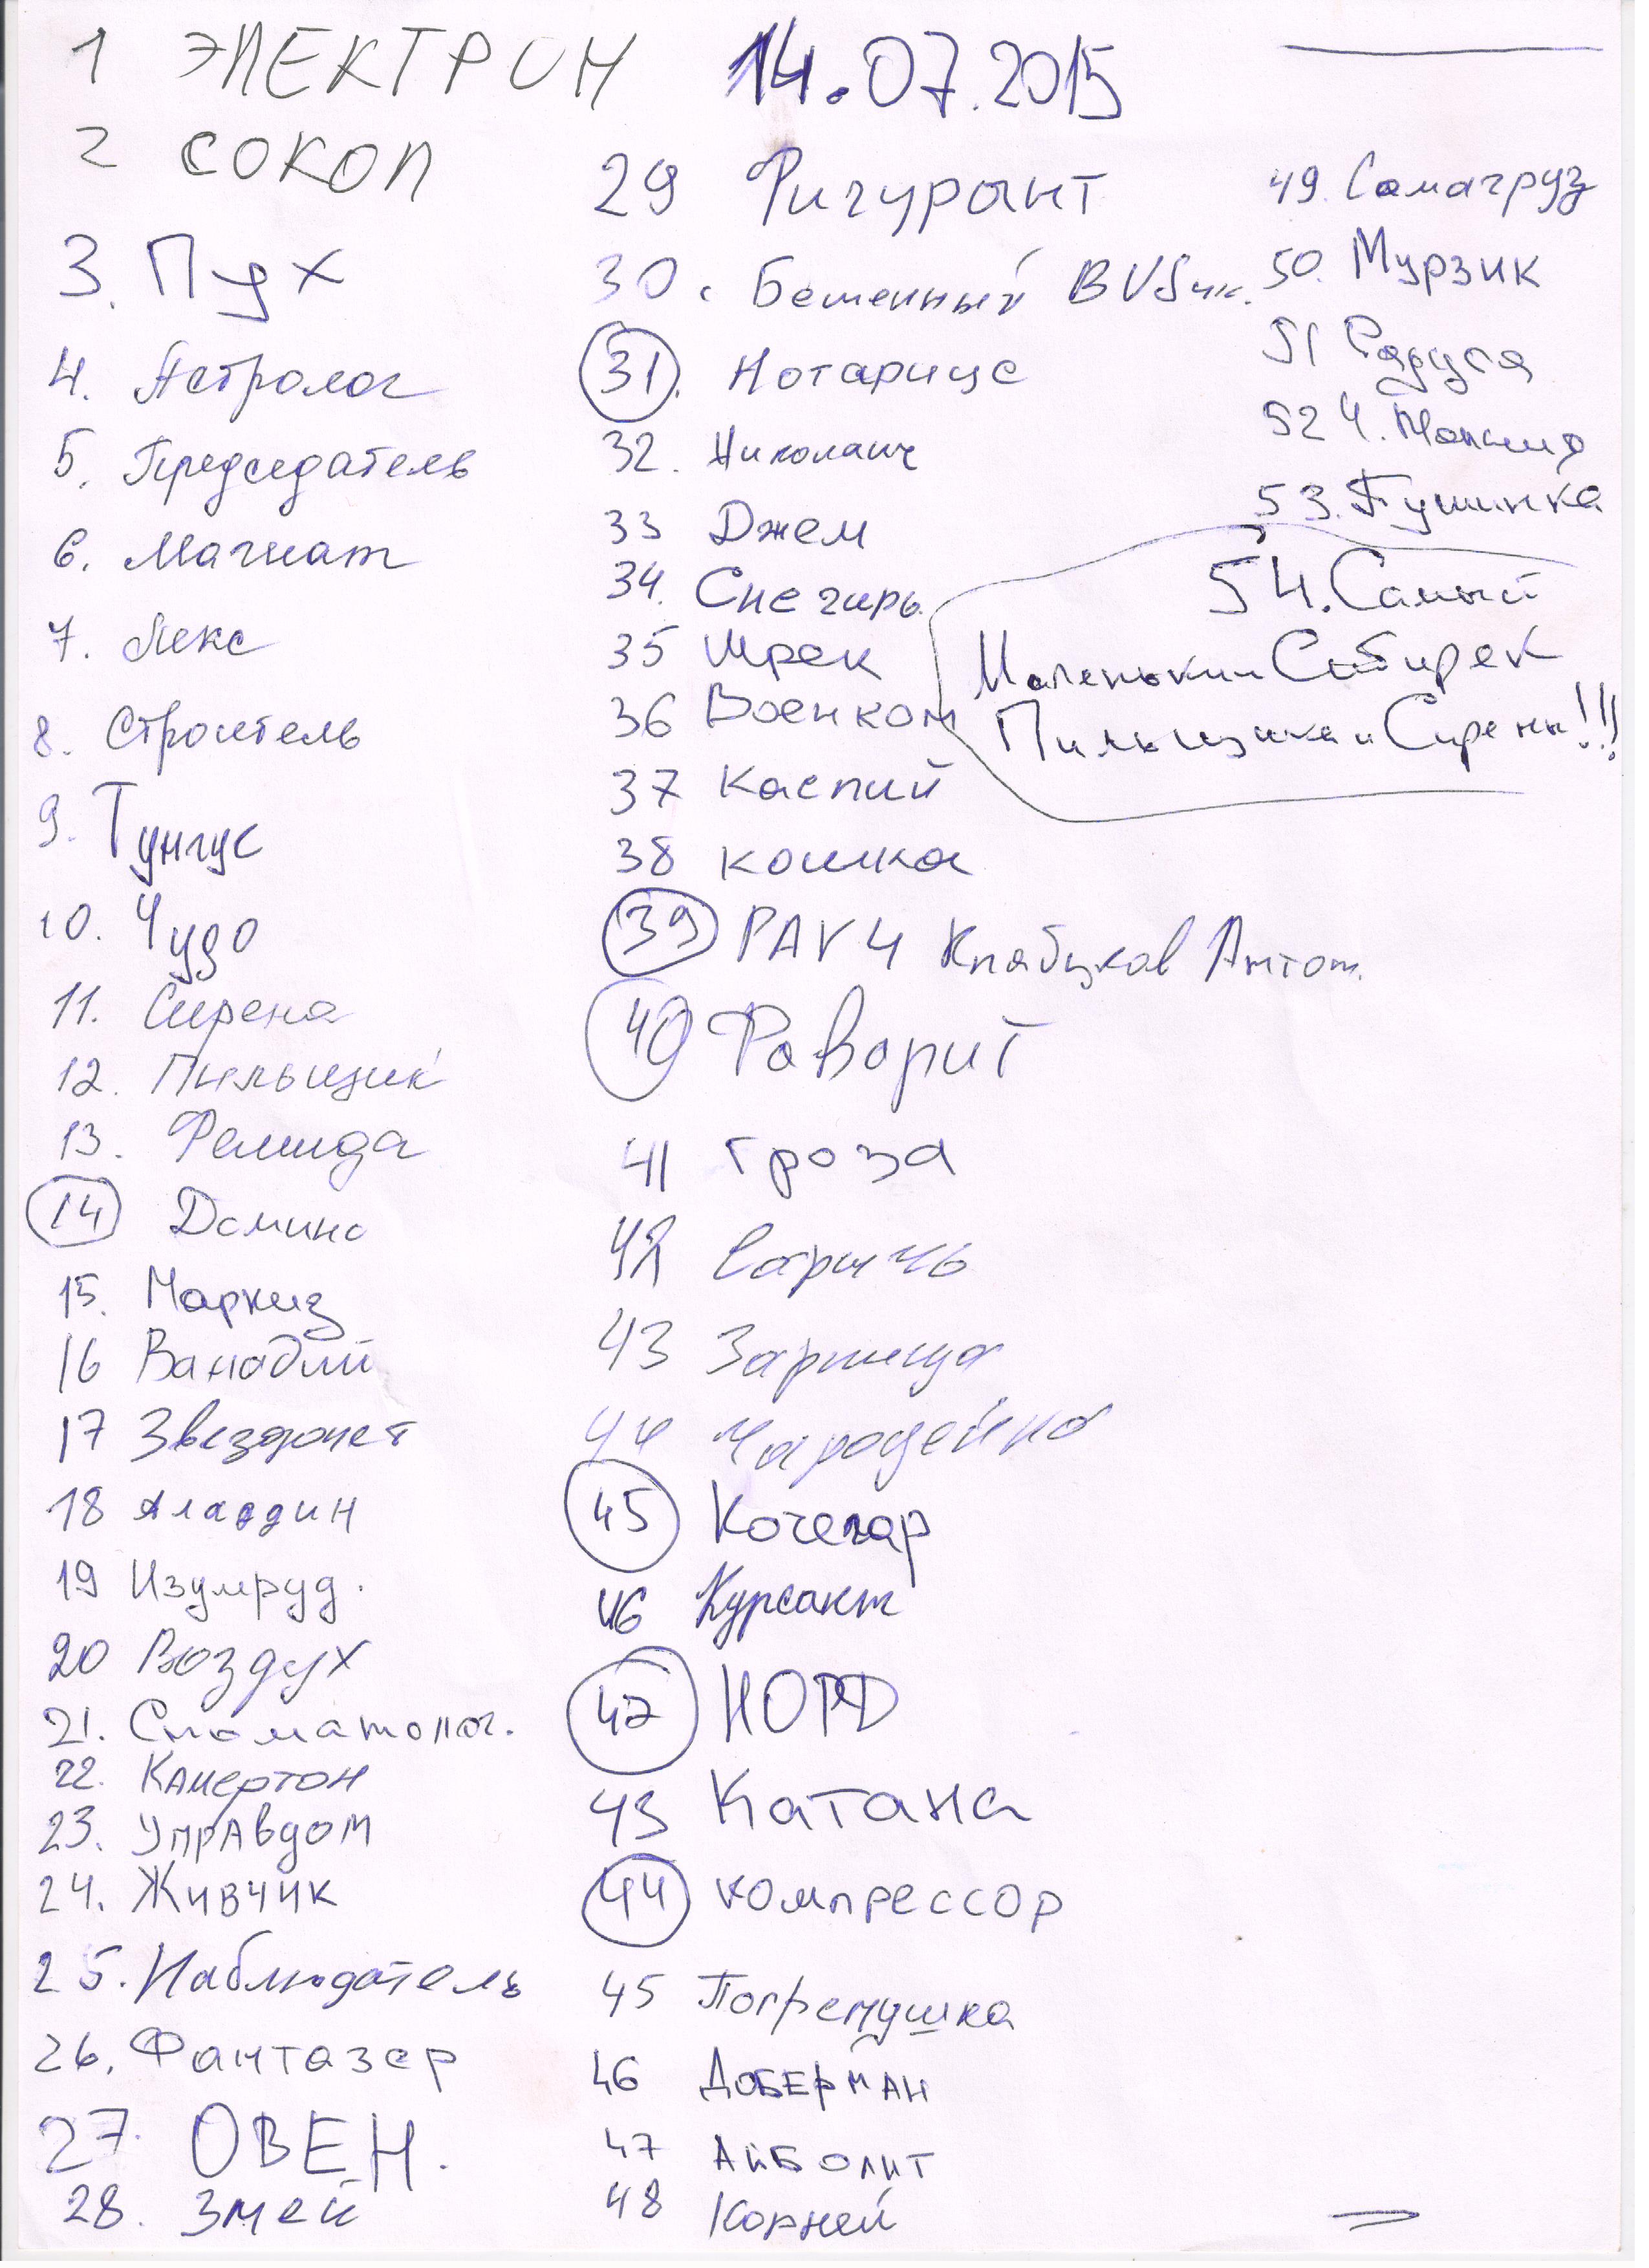 1 ЭЛЕКТРОН
14.07.2015
2 СОКОЛ
3. Пух
4. Астролог
5. Председатель
6. Магнат
7. Лекс
8. Строитель
9. Тунгус
10. Чудо
11. Сирена
12. Пильщик
13. Фемида
14 Домино
15. Маркиз
16 Ванадий
17 Звездочет
18 Аладдин
19 Изумруд.
20 Воздух
21. Стоматолог.
22. Камертон
23. Управдом
24. Живчик
25. Наблюдатель
26. Фантазер
27. ОВЕН.
28. Змей
29 Фигурант
30. Бешенный
31. Нотариус
32. Николаич
33 Джем
34. Снегирь
35 Шрек
36 Военком
37 Каспий
38 кошка
39 РАV 4 Антон
40 Фаворит
41 Гроза
42 Сарычь
43 Зарница
44 Чародейка
45 Кочегар
46 Курсант
47 НОРД
43 Катана
44 компрессор
45 Погремушка
46 ДОБЕРМАН
47 Айболит
48 Корней
49. Самагруз
50. Мурзик
51 Радуга
52 Ч.
53. Пушинка
54. Самый
Маленький Сибирек
Пильщика и Сирены!!!